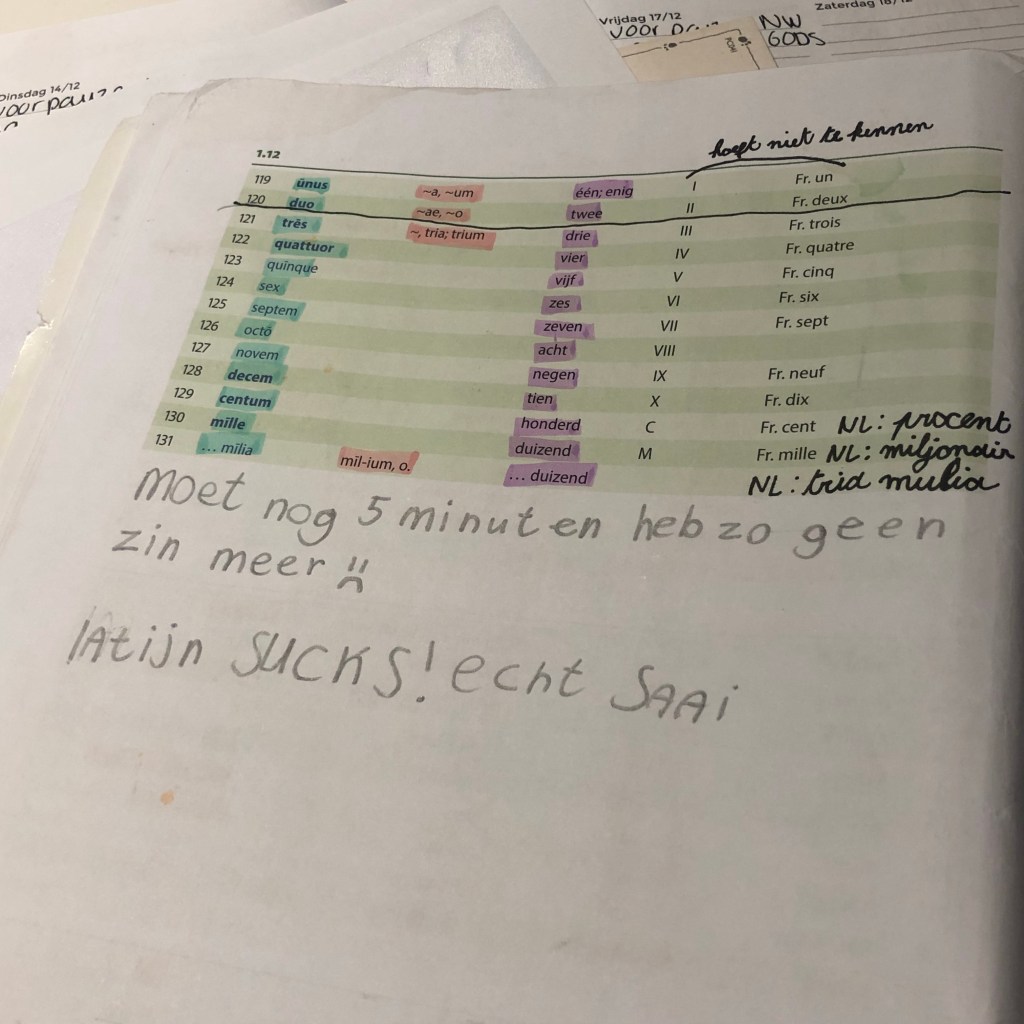 Zaterdag
Vrijdag 17/12
voor
NW
GODS
Dinsdag 14/12
1.12
hoeft niet te kennen
119 ūnus ~a, ~um één; enig I Fr. un
120 duo ~ae, ~o twee II Fr. deux
121 trēs ~, tria; trium drie III Fr. trois
122 quattuor vier IV Fr. quatre
123 quīnque vijf V Fr. cinq
124 sex zes VI Fr. six
125 septem zeven VII Fr. sept
126 octō acht VIII
127 novem negen IX Fr. neuf
128 decem tien X Fr. dix
129 centum honderd C Fr. cent NL: procent
130 mīlle duizend M Fr. mille NL: miljonair
131 ... mīlia mīl-ium, o. ... duizend NL:
Moet nog 5 minuten heb zo geen
zin meer
lAtijn SUCKS! echt SAAi